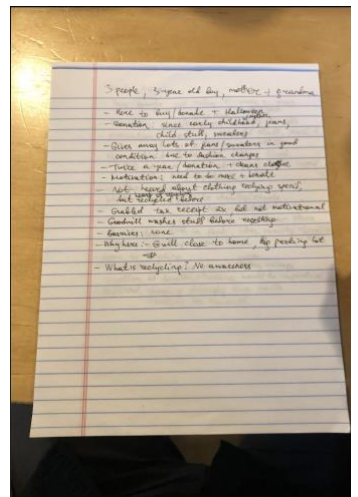 3 people, 3-year old boy, mother + grandma
- Here to buy/donate + Halloween
- Donation: since early childhood, jeans,
child stuff, sweaters
- Gives away lots of jeans/sweaters in good
condition due to fashion changes
- Twice a year / donation → cleans
- Motivation: need to do more + donate
- Not heard about clothing recycling,
but recycled before
- Grabbed tax receipt as but not motivational
- Goodwill washes stuff before
- Barriers: none
- Why here:- Gwill close to home, big parking lot
- What is recycling? No awareness